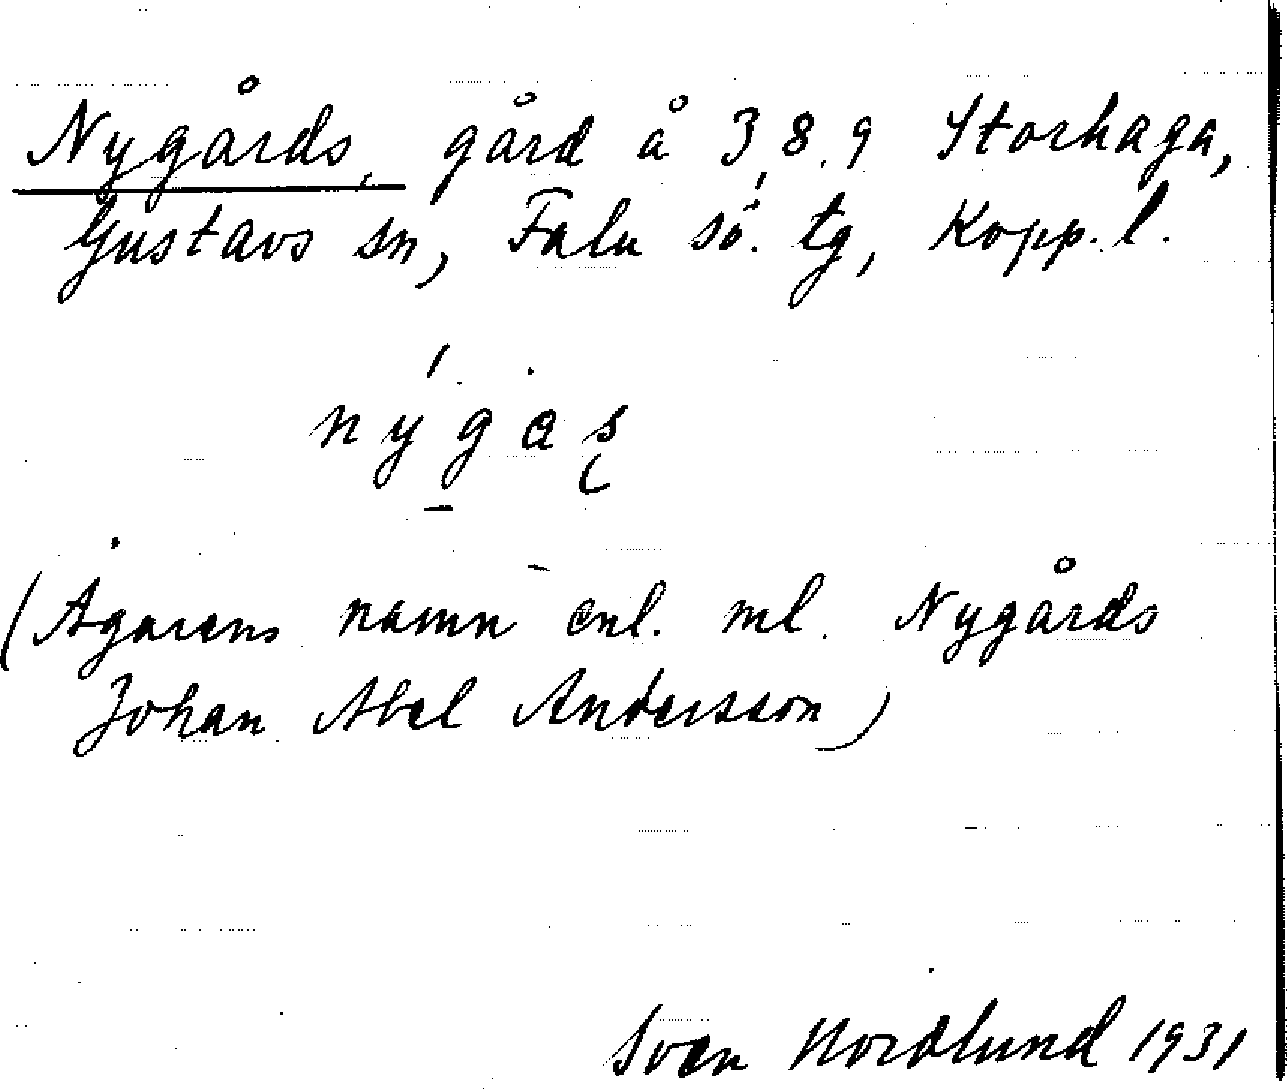 Nygårds, gård å 3, 8, 9 Storhaga,
Gustavs sn, Falu sö. tg, Kopp. l.
nýgaș
(Ägarens namn enl. ml. Nygårds
Johan Abel Andersson)
Sven Nordlund 1931